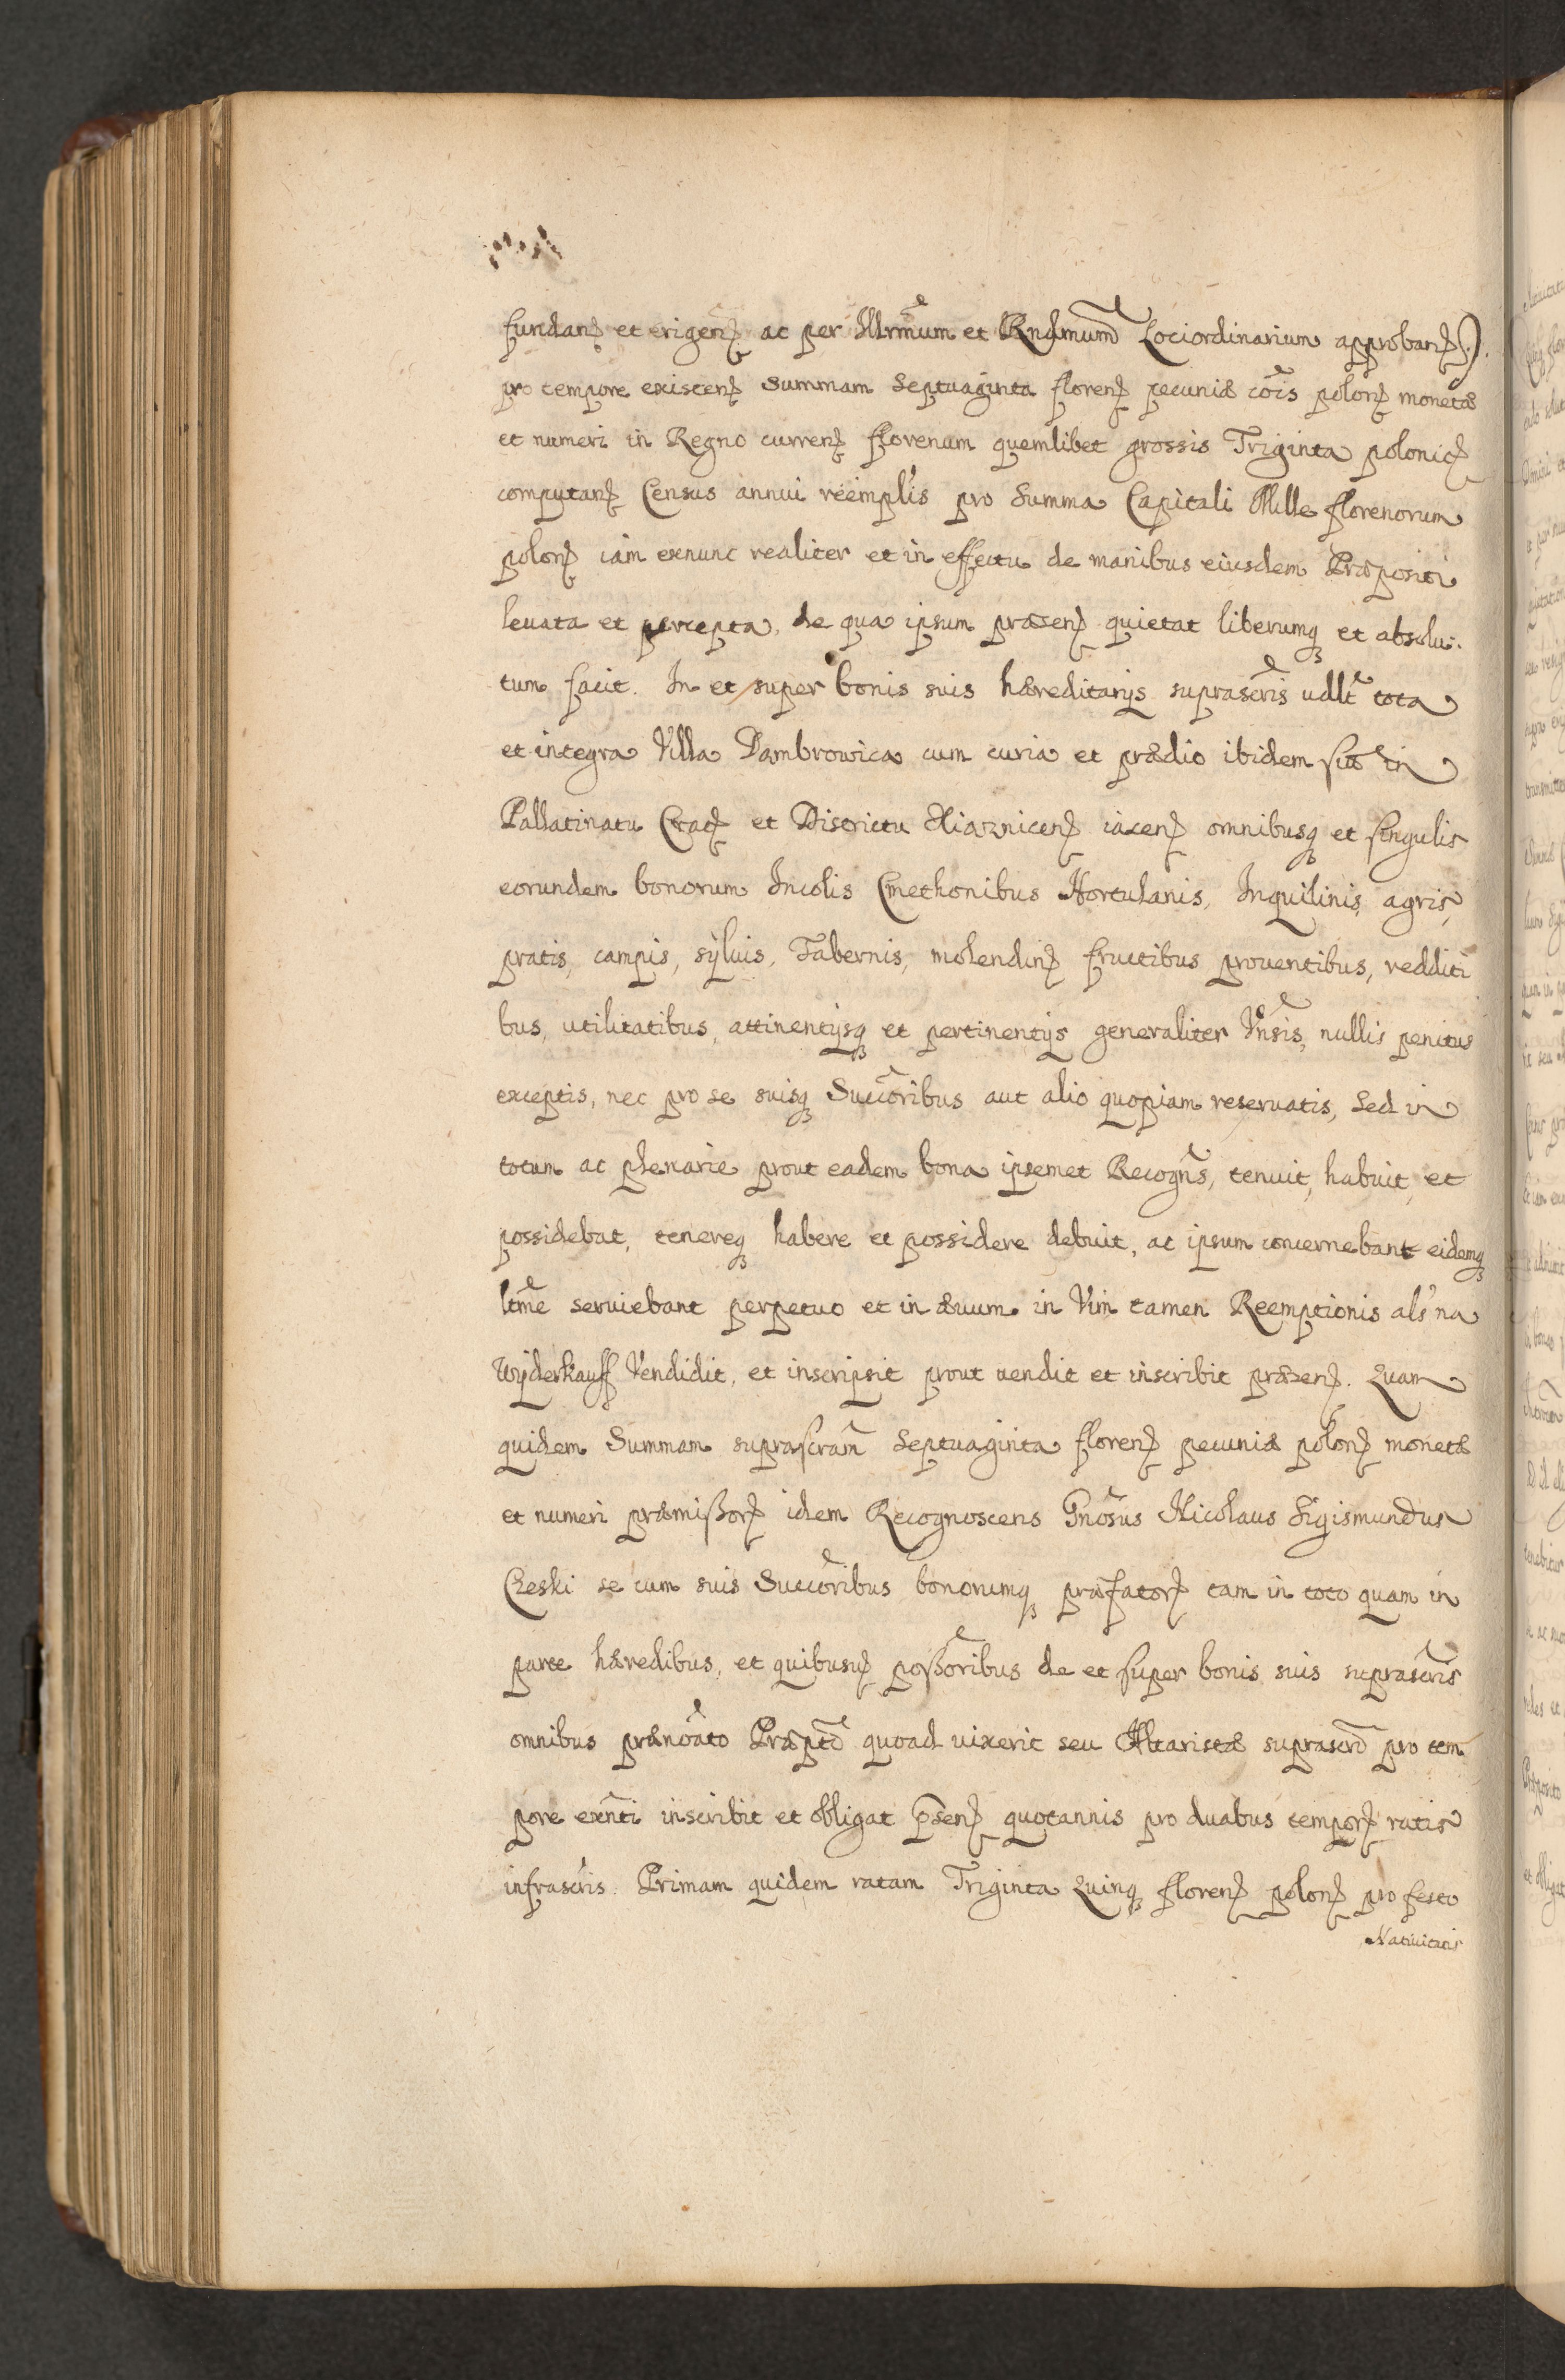 fundanꝫ et erigenꝫ ac per Illrm̃um et Rndm̃um Lociordinarium approbanꝫ.)
pro tempore existenꝫ summam Septuaginta florenꝫ pecuniæ cõis polonꝫ monetæ
et numeri in Regno currenꝫ florenum quemlibet grossis Triginta polonicꝫ
computanꝫ Census annui reempl's pro Summa Capitali Mille florenorum
polonꝫ iam exnunc realiter et in effectu de manibus eiusdem Præpositi
leuata et percepta, de qua ipsum præsenꝫ quietat liberumqꝫ et absolu:
tum facit. In et super bonis suis hæreditarijs suprascr̃is udlt̃ tota
et integra Villa Dambrowica cum curia et prædio ibidem suo in
Pallatinatu Cracꝫ et Districtu Xiaznicenꝫ iacenꝫ omnibusqꝫ et singulis
eorundem bonorum Incolis Cmethonibus Hortulanis, Inquilinis, agris,
pratis, campis, syluis, Tabernis, molendinꝫ fructibus prouentibus, redditi
bus, utilitatibus, attinentijsqꝫ et pertinentijs generaliter Vnṽsis, nullis penitus
exceptis, nec pro se suisqꝫ Succõribus aut alio quopiam reseruatis, Sed in
totum ac plenarie prout eadem bona ipsemet Recogñs, tenuit, habuit, et
possidebat, tenereqꝫ habere et possidere debuit, ac ipsum concernebant eidemqꝫ
ltm̃e seruiebant perpetuo et in æuum in Vim tamen Reemptionis als̃ na
Wyderkauff Vendidit, et inscripsit prout uendit et inscribit præsenꝫ. Quam
quidem Summam suprascr̃am Septuaginta florenꝫ pecuniæ polonꝫ monetæ
et numeri præmißorꝫ idem Recognoscens Gnõsus Nicolaus Sigismundus
Czeski se cum suis Succõribus bonorumqꝫ præfatorꝫ tam in toto quam in
parte hæredibus, et quibusuꝫ poßõribus de et super bonis suis suprascr̃is
omnibus prænõato Præptõ quoad uixerit seu Altaristæ suprascrõ pro tem
pore exñti inscribit et obligat p̃senꝫ quotannis pro duabus temporꝫ ratis
infrascr̃is. Primam quidem ratam Triginta Quinqꝫ florenꝫ polonꝫ pro festo
Natiuitatis